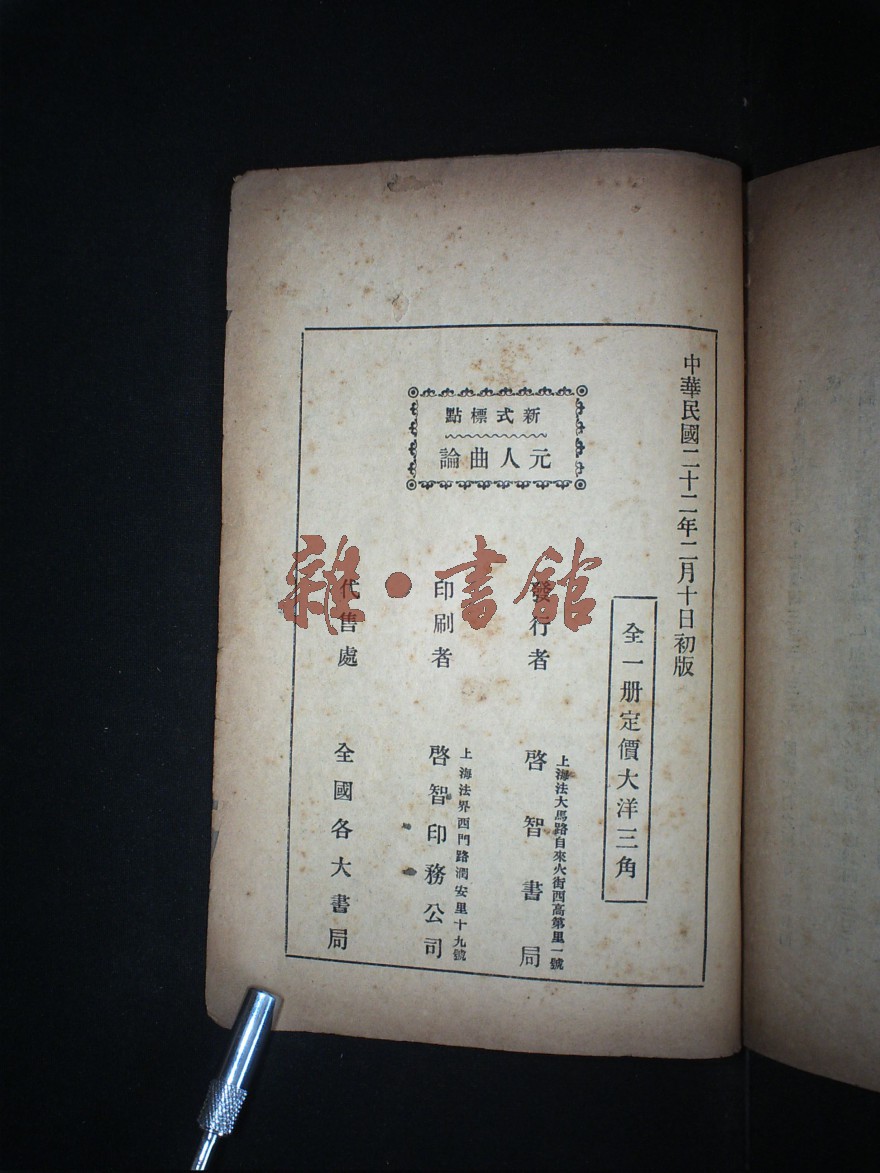 中華民國二十二年二月十日初版
全一册定價大洋三角
新式標點
元人曲論
發行者
上海法大馬路自來火街西高第里一號
啓智書局
印刷者
上海法界西門路潤安里十九號
啓智印務公司
代售處
全國各大書局
雜·書館